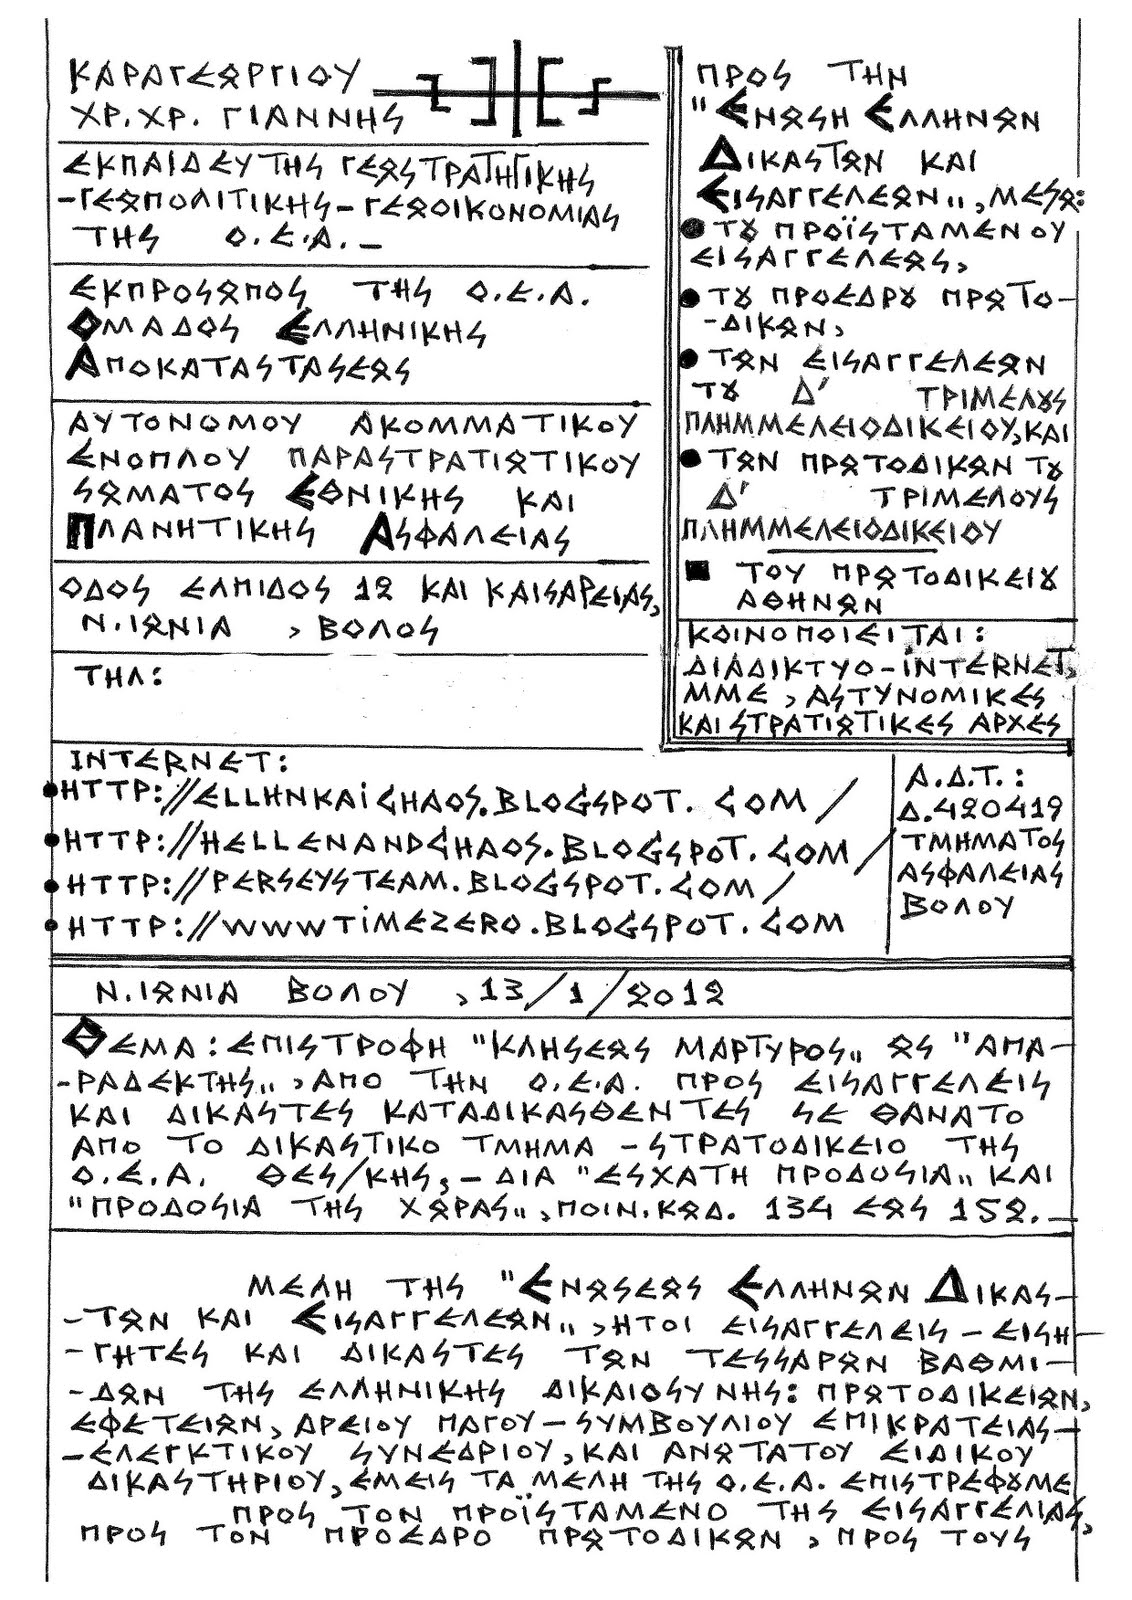 ΚΑΡΑΓΕΩΡΓΙΟΥ
ΧΡ.ΧΡ. ΓΙΑΝΝΗΣ
ΕΚΠΑΙΔΕΥΤΗΣ ΓΕΩΣΤΡΑΤΗΓΙΚΗΣ
-ΓΕΩΠΟΛΙΤΙΚΗΣ-ΓΕΩΟΙΚΟΝΟΜΙΑΣ
ΤΗΣ Ο.Ε.Α.-
ΕΚΠΡΟΣΩΠΟΣ ΤΗΣ Ο.Ε.Α.
ΟΜΑΔΟΣ ΕΛΛΗΝΙΚΗΣ
ΑΠΟΚΑΤΑΣΤΑΣΕΩΣ
ΑΥΤΟΝΟΜΟΥ ΑΚΟΜΜΑΤΙΚΟΥ
ΕΝΟΠΛΟΥ ΠΑΡΑΣΤΡΑΤΙΩΤΙΚΟΥ
ΣΩΜΑΤΟΣ ΕΘΝΙΚΗΣ ΚΑΙ
ΠΛΑΝΗΤΙΚΗΣ ΑΣΦΑΛΕΙΑΣ
ΟΔΟΣ ΕΛΠΙΔΟΣ 12 ΚΑΙ ΚΑΙΣΑΡΕΙΑΣ,
Ν.ΙΩΝΙΑ , ΒΟΛΟΣ
ΤΗΛ:
ΠΡΟΣ ΤΗΝ
"ΕΝΩΣΗ ΕΛΛΗΝΩΝ
ΔΙΚΑΣΤΩΝ ΚΑΙ
ΕΙΣΑΓΓΕΛΕΩΝ„, ΜΕΣΩ:
● ΤȢ ΠΡΟΪΣΤΑΜΕΝΟΥ
ΕΙΣΑΓΓΕΛΕΩΣ,
● ΤȢ ΠΡΟΕΔΡȢ ΠΡΩΤΟ-
-ΔΙΚΩΝ,
● ΤΩΝ ΕΙΣΑΓΓΕΛΕΩΝ
ΤȢ Δ' ΤΡΙΜΕΛȢΣ
ΠΛΗΜΜΕΛΕΙΟΔΙΚΕΙΟΥ, ΚΑΙ
● ΤΩΝ ΠΡΩΤΟΔΙΚΩΝ ΤȢ
Δ' ΤΡΙΜΕΛΟΥΣ
ΠΛΗΜΜΕΛΕΙΟΔΙΚΕΙΟΥ
■ ΤΟΥ ΠΡΩΤΟΔΙΚΕΙȢ
ΑΘΗΝΩΝ
ΚΟΙΝΟΠΟΙΕΙΤΑΙ:
ΔΙΑΔΙΚΤΥΟ-INTERNET,
ΜΜΕ, ΑΣΤΥΝΟΜΙΚΕΣ
ΚΑΙ ΣΤΡΑΤΙΩΤΙΚΕΣ ΑΡΧΕΣ
INTERNET:
● HTTP://ELLHNKAICHAOS.BLOGSPOT.COM/
● HTTP://HELLENANDCHAOS.BLOGSPOT.COM/
● HTTP://PERSEYSTEAM.BLOGSPOT.COM/
● HTTP://WWWTIMEZERO.BLOGSPOT.COM
Α.Δ.Τ.:
Δ.420419
ΤΜΗΜΑΤΟΣ
ΑΣΦΑΛΕΙΑΣ
ΒΟΛΟΥ
Ν.ΙΩΝΙΑ ΒΟΛΟΥ , 13/1/2012
ΘΕΜΑ: ΕΠΙΣΤΡΟΦΗ "ΚΛΗΣΕΩΣ ΜΑΡΤΥΡΟΣ„ ΩΣ "ΑΠΑ-
-ΡΑΔΕΚΤΗΣ„, ΑΠΟ ΤΗΝ Ο.Ε.Α. ΠΡΟΣ ΕΙΣΑΓΓΕΛΕΙΣ
ΚΑΙ ΔΙΚΑΣΤΕΣ ΚΑΤΑΔΙΚΑΣΘΕΝΤΕΣ ΣΕ ΘΑΝΑΤΟ
ΑΠΟ ΤΟ ΔΙΚΑΣΤΙΚΟ ΤΜΗΜΑ -ΣΤΡΑΤΟΔΙΚΕΙΟ ΤΗΣ
Ο.Ε.Α. ΘΕΣ/ΚΗΣ,- ΔΙΑ "ΕΣΧΑΤΗ ΠΡΟΔΟΣΙΑ„ ΚΑΙ
"ΠΡΟΔΟΣΙΑ ΤΗΣ ΧΩΡΑΣ„, ΠΟΙΝ.ΚΩΔ. 134 ΕΩΣ 152.-
ΜΕΛΗ ΤΗΣ "ΕΝΩΣΕΩΣ ΕΛΛΗΝΩΝ ΔΙΚΑΣ-
-ΤΩΝ ΚΑΙ ΕΙΣΑΓΓΕΛΕΩΝ„, ΗΤΟΙ ΕΙΣΑΓΓΕΛΕΙΣ - ΕΙΣΗ-
-ΓΗΤΕΣ ΚΑΙ ΔΙΚΑΣΤΕΣ ΤΩΝ ΤΕΣΣΑΡΩΝ ΒΑΘΜΙ-
-ΔΩΝ ΤΗΣ ΕΛΛΗΝΙΚΗΣ ΔΙΚΑΙΟΣΥΝΗΣ: ΠΡΩΤΟΔΙΚΕΙΩΝ,
ΕΦΕΤΕΙΩΝ, ΑΡΕΙΟΥ ΠΑΓΟΥ-ΣΥΜΒΟΥΛΙΟΥ ΕΠΙΚΡΑΤΕΙΑΣ-
-ΕΛΕΓΚΤΙΚΟΥ ΣΥΝΕΔΡΙΟΥ, ΚΑΙ ΑΝΩΤΑΤΟΥ ΕΙΔΙΚΟΥ
ΔΙΚΑΣΤΗΡΙΟΥ, ΕΜΕΙΣ ΤΑ ΜΕΛΗ ΤΗΣ Ο.Ε.Α. ΕΠΙΣΤΡΕΦȢΜΕ
ΠΡΟΣ ΤΟΝ ΠΡΟΪΣΤΑΜΕΝΟ ΤΗΣ ΕΙΣΑΓΓΕΛΙΑΣ,
ΠΡΟΣ ΤΟΝ ΠΡΟΕΔΡΟ ΠΡΩΤΟΔΙΚΩΝ, ΠΡΟΣ ΤΟΥΣ